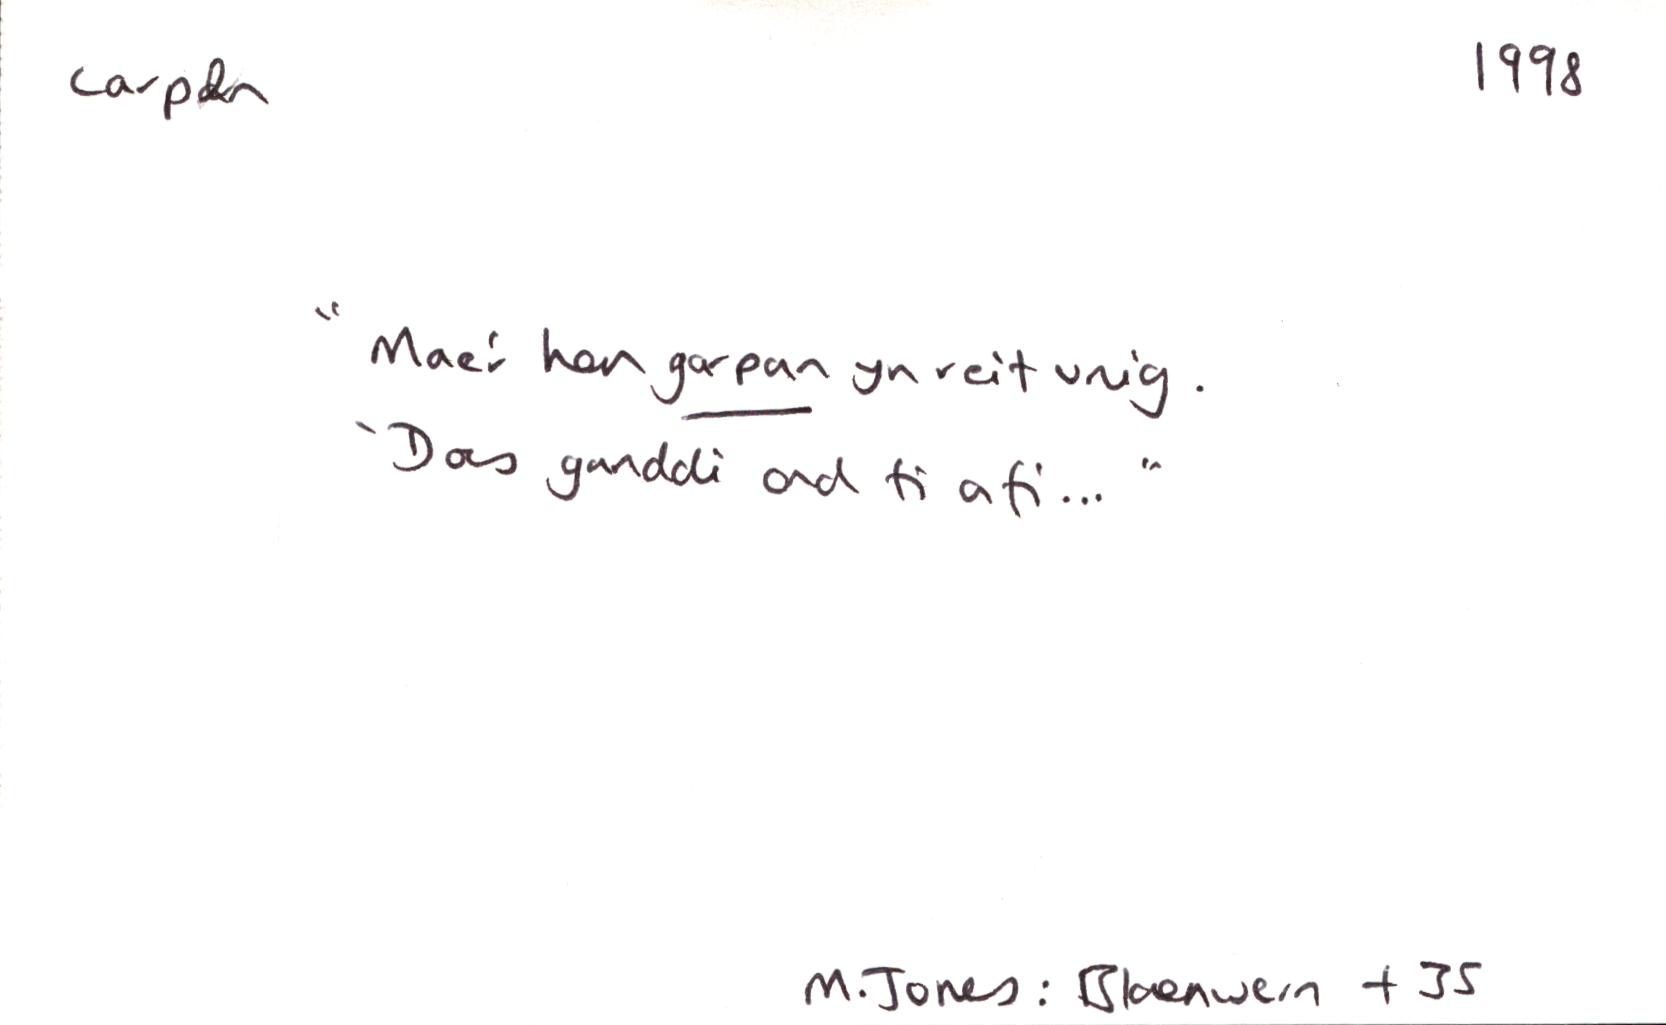 carpan
1998
"Mae'r hen garpan yn reit unig.
'Does ganddi ond ti a fi..."
M. Jones: Blaenwern t 35